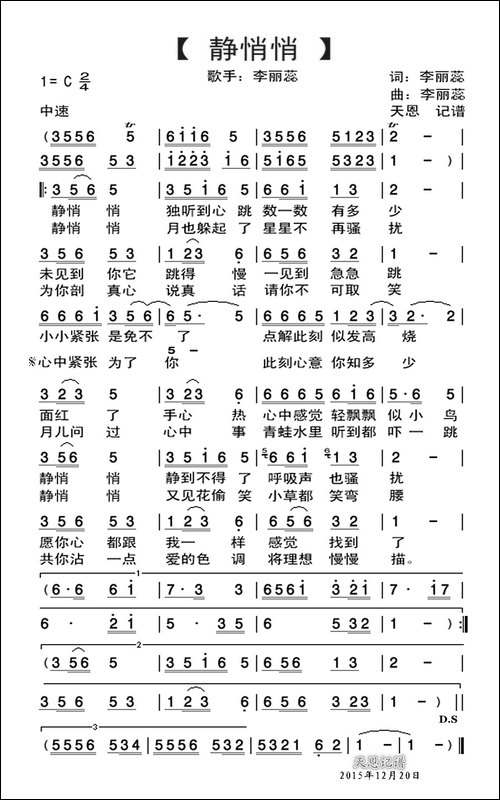 【 静悄悄 】
1= C 2/4
歌手：李丽蕊
词：李丽蕊
曲：李丽蕊
中速
天恩 记谱
(3556 5 | 6116 5 | 3556 5123 | 2 - |
3556 53 | 12231 66 | 5165 5323 | 1 - )
|: 356 5 | 3516 5 | 661 13 | 2 - |
静悄 悄 独听到心 跳 数一数 有多 少
静悄 悄 月也躲起 了 星星不 再骚 扰
356 53 | 123 6 | 356 32 | 1 - |
未见到 你它 跳得 慢 一见到 急急 跳
为你剖 真心 说真 话 请你不 可取 笑
6661 356 | 65· 5 | 6665 123 | 32· 2 |
小小紧张 是免不 了 点解此刻 似发高 烧
5 -
心中紧张 为了 你 此刻心意 你知多 少
323 5 | 123 6 | 6665 616 | 5·6 5 |
面红 了 手心 热 心中感觉 轻飘飘 似小 鸟
月儿问 过 心中 事 青蛙水里 听到都 吓一 跳
356 5 | 3516 5 | 661 13 | 2 - |
静悄 悄 静到不得 了 呼吸声 也骚 扰
静悄 悄 又见花偷 笑 小草都 笑弯 腰
356 53 | 123 6 | 656 32 | 1 - |
愿你心 都跟 我一 样 感觉 找到 了
共你沾 一点 爱的 色 调 将理想 慢慢 描。
1
(6·6 61 | 7·3 3 | 6·6561 321 | 7· 17 |
6 · 21 | 5 · 35 | 6 532 | 1 - ) :|
2
(356 5 | 3516 5 | 661 13 | 2 - |
356 53 | 123 6 | 356 32 | 1 - )
D.S
3
(5556 534 | 5556 5 | 5321 62 | 1 - | 1 - )
天恩记谱
2015年12月20日